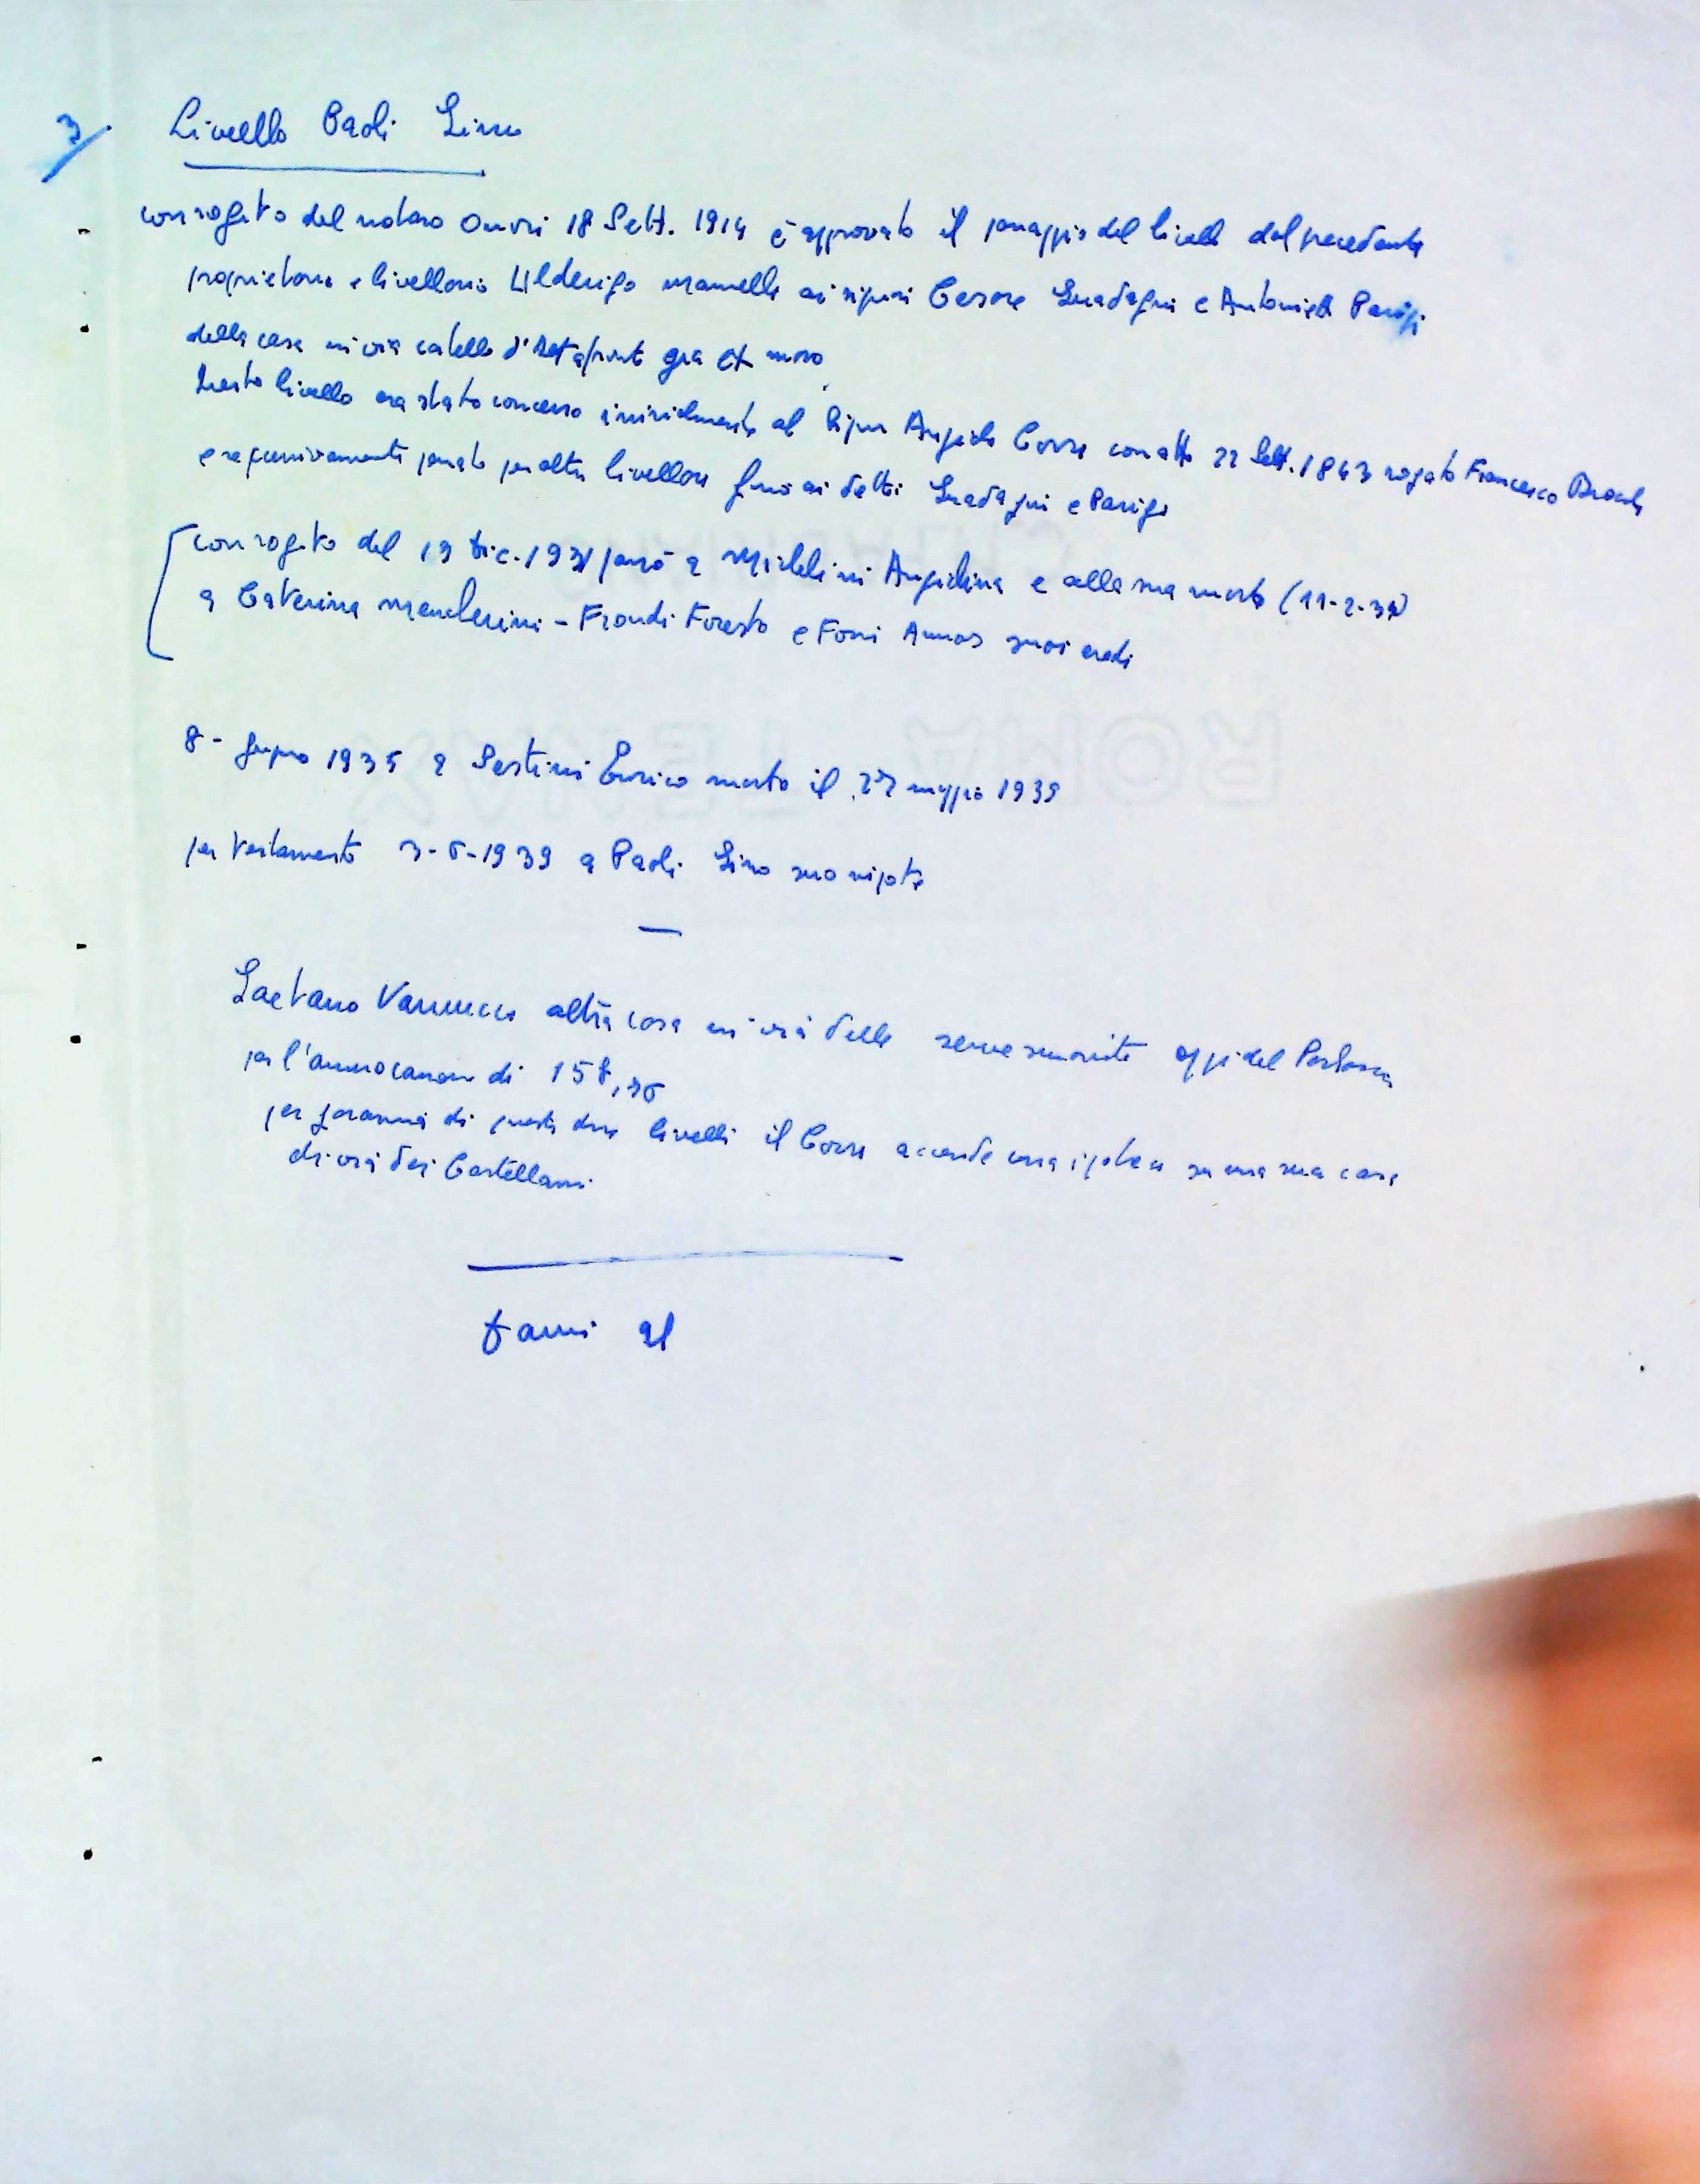 3/ Livello Paoli Lino
con rogito del notaro 18 Sett. 1914 è approvato il passaggio del livello dal precedente
proprietario e livellario Ulderigo ai signori Cesare Guadagni e Antonietta Parigi
della casa in via castello d'Altafronte già ex
Questo livello era stato concesso inizialmente al Signor Angiolo Corsi con atto 22 Sett. 1843 rogato Francesco
e successivamente passato per altri livellari fino ai detti Guadagni e Parigi
con rogito del 19 dic. 1931 passò a Michelini Angiolina e alla sua morte (11-2-34)
a Caterina Mancherini - Frondi Foresto e suoi eredi
8 - giugno 1935 a Sestini Enrico morto il 27 maggio 1939
per testamento 3-6-1939 a Paoli Lino suo nipote
Gaetano Vannucci altra casa in via delle serve smarrite oggi del
per l'annuo canone di
per garanzia di questi due livelli il Corsi accende una ipoteca su una sua casa
di via dei Castellani